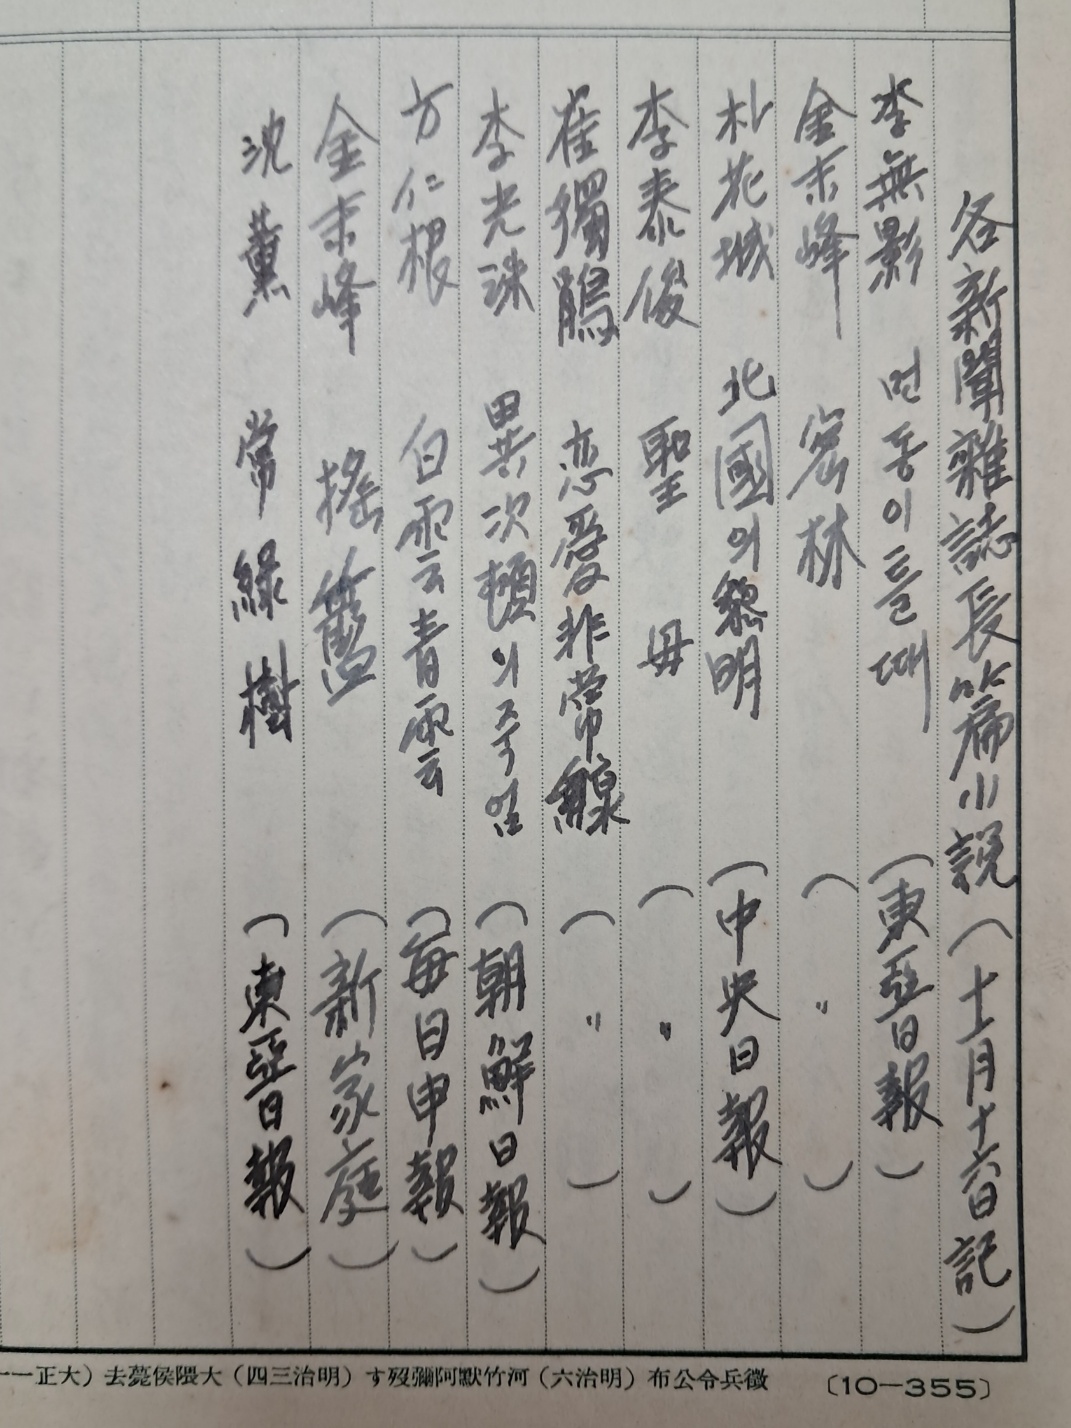 各新聞雜誌長篇小說(十一月十六日記)
李無影 먼동이틀때 (東亞日報)
金末峰 密林 ( 〃 )
朴花城 北國의黎明 (中央日報)
李泰俊 聖母 ( 〃 )
崔獨鵑 恋愛非常線 ( 〃 )
李光洙 異次頓의죽엄 (朝鮮日報)
方仁根 白雲青雲 (每日申報)
金末峰 搖籃 (新家庭)
沈薰 常綠樹 (東亞日報)
徵兵令公布(明治六)河竹默阿彌歿す(明治三四)大隈侯薨去(大正一一
〔10—355〕